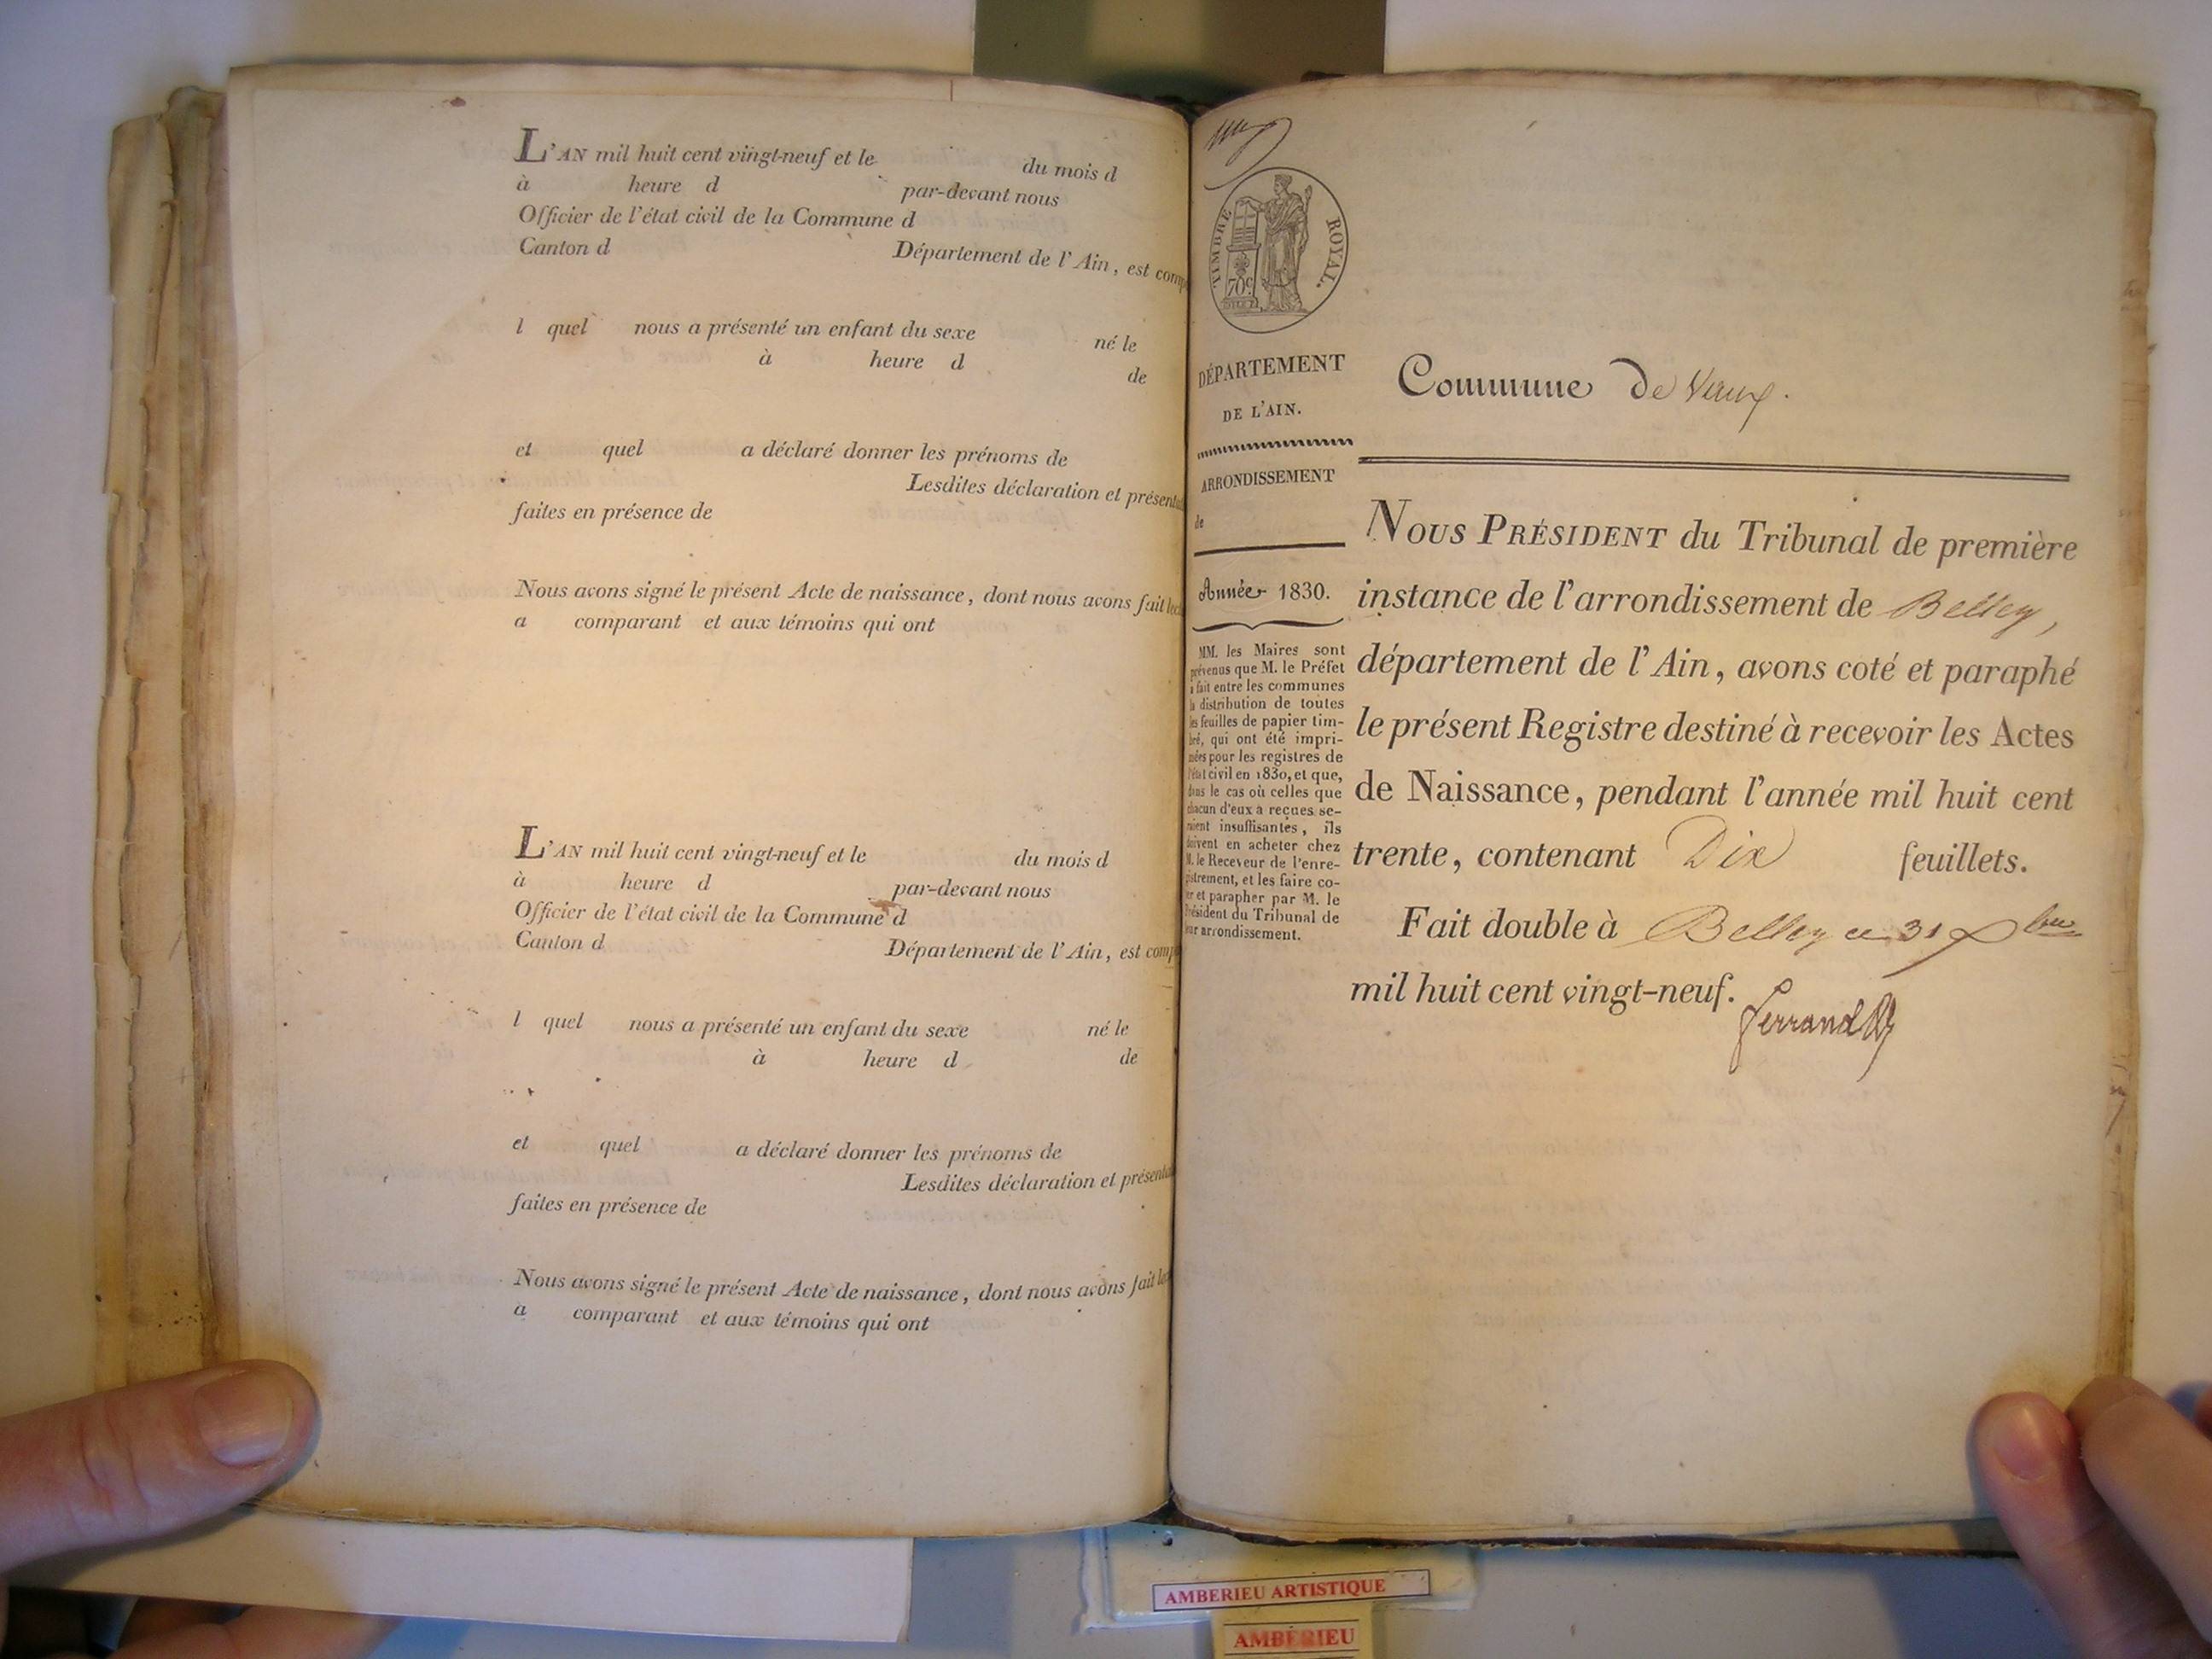 L'AN mil huit cent vingt-neuf et le du mois d
à heure d par-devant nous
Officier de l'état civil de la Commune d
Canton d Département de l'Ain, est comp
l quel nous a présenté un enfant du sexe né le
à heure d de
et quel a déclaré donner les prénoms de
Lesdites déclaration et présenta
faites en présence de
Nous avons signé le présent Acte de naissance, dont nous avons fait lec
a comparant et aux témoins qui ont
L'AN mil huit cent vingt-neuf et le du mois d
à heure d par-devant nous
Officier de l'état civil de la Commune d
Canton d Département de l'Ain, est comp
l quel nous a présenté un enfant du sexe né le
à heure d de
et quel a déclaré donner les prénoms de
Lesdites déclaration et présenta
faites en présence de
Nous avons signé le présent Acte de naissance, dont nous avons fait lec
a comparant et aux témoins qui ont
TIMBRE ROYAL.
70c
DÉPARTEMENT
DE L'AIN.
ARRONDISSEMENT
de
Année 1830.
MM. les Maires sont
prévenus que M. le Préfet
a fait entre les communes
la distribution de toutes
les feuilles de papier tim-
bré, qui ont été impri-
mées pour les registres de
l'état civil en 1830, et que,
dans le cas où celles que
chacun d'eux a reçues se-
raient insuffisantes, ils
doivent en acheter chez
M. le Receveur de l'enre-
gistrement, et les faire co-
ter et parapher par M. le
Président du Tribunal de
leur arrondissement.
Commune de Vaux.
NOUS PRÉSIDENT du Tribunal de première
instance de l'arrondissement de Belley,
département de l'Ain, avons coté et paraphé
le présent Registre destiné à recevoir les Actes
de Naissance, pendant l'année mil huit cent
trente, contenant Dix feuillets.
Fait double à Belley ce 31 Xbre
mil huit cent vingt-neuf.
Ferrand
AMBERIEU ARTISTIQUE
AMBÉRIEU